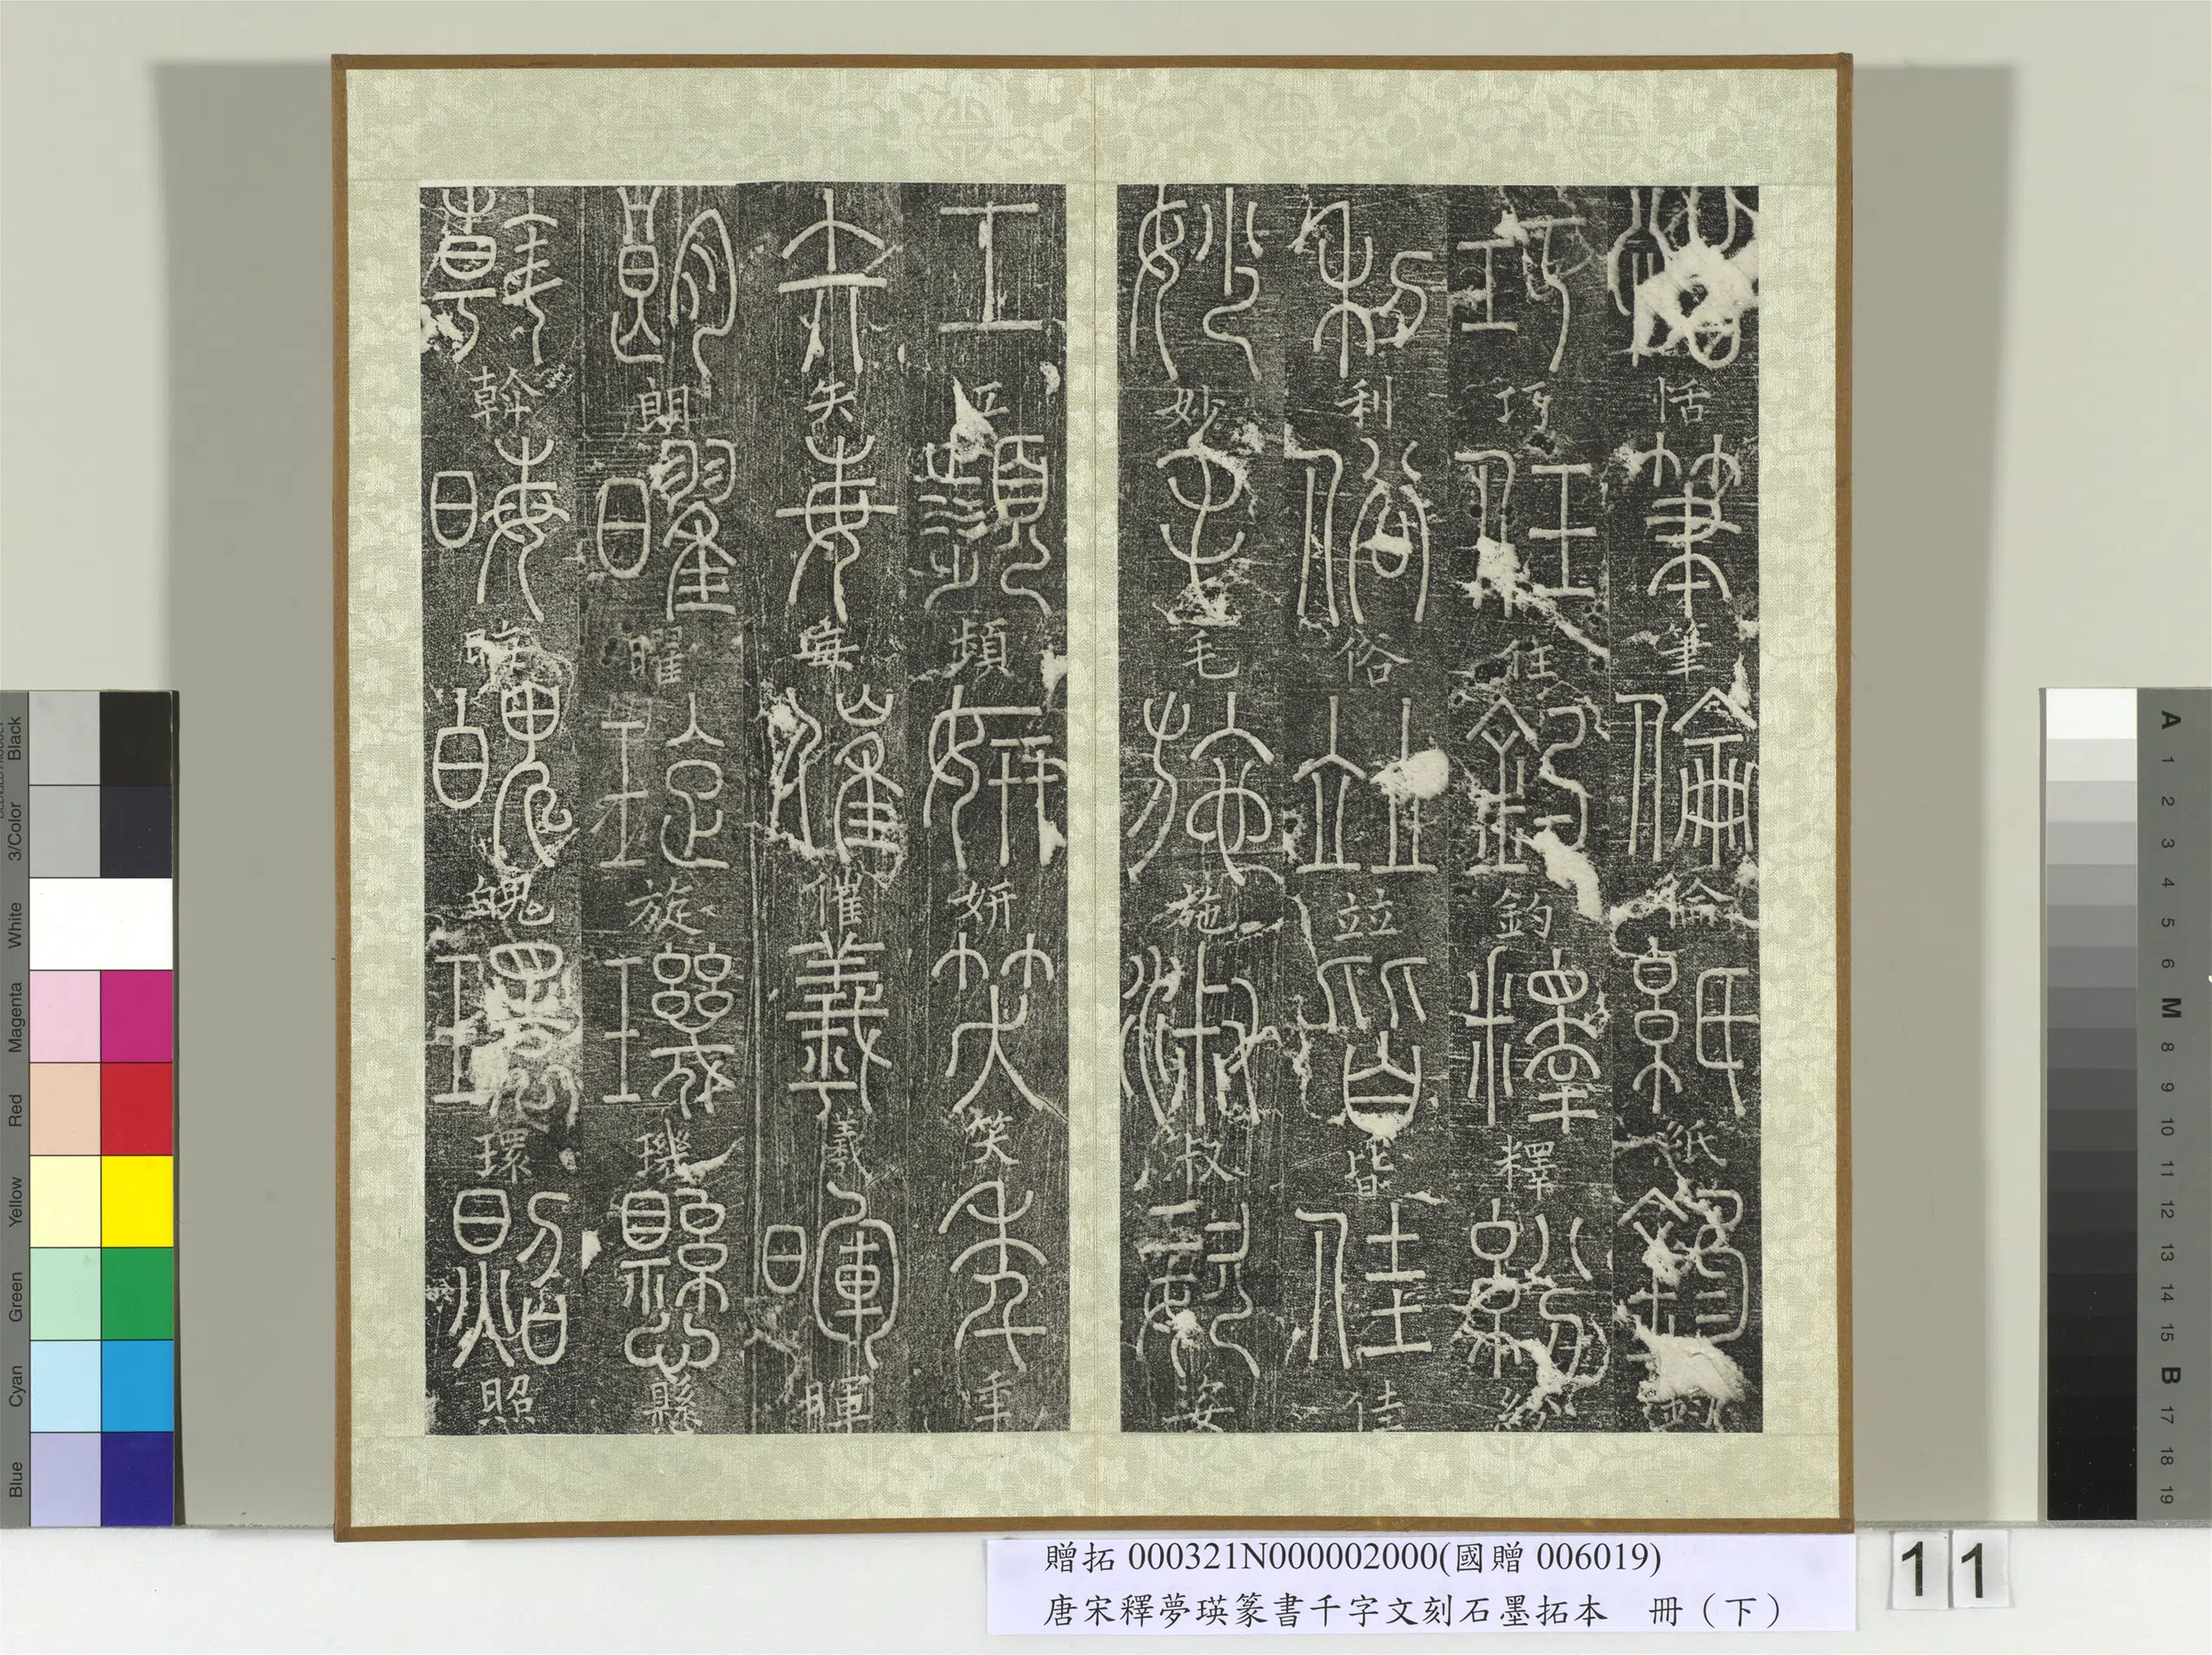 恬筆倫紙鈞
巧任釣釋紛
利俗竝皆佳
妙毛施淑姿
工頻妍笑秊
矢每催羲暉
朗曜旋璣懸
斡晦魄環照
贈拓 000321N000002000(國贈 006019)
唐宋釋夢瑛篆書千字文刻石墨拓本　冊（下）
11
Black
3/Color
White
Magenta
Red
Yellow
Green
Cyan
Blue
A 1 2 3 4 5 6 M 8 9 10 11 12 13 14 15 B 17 18 19